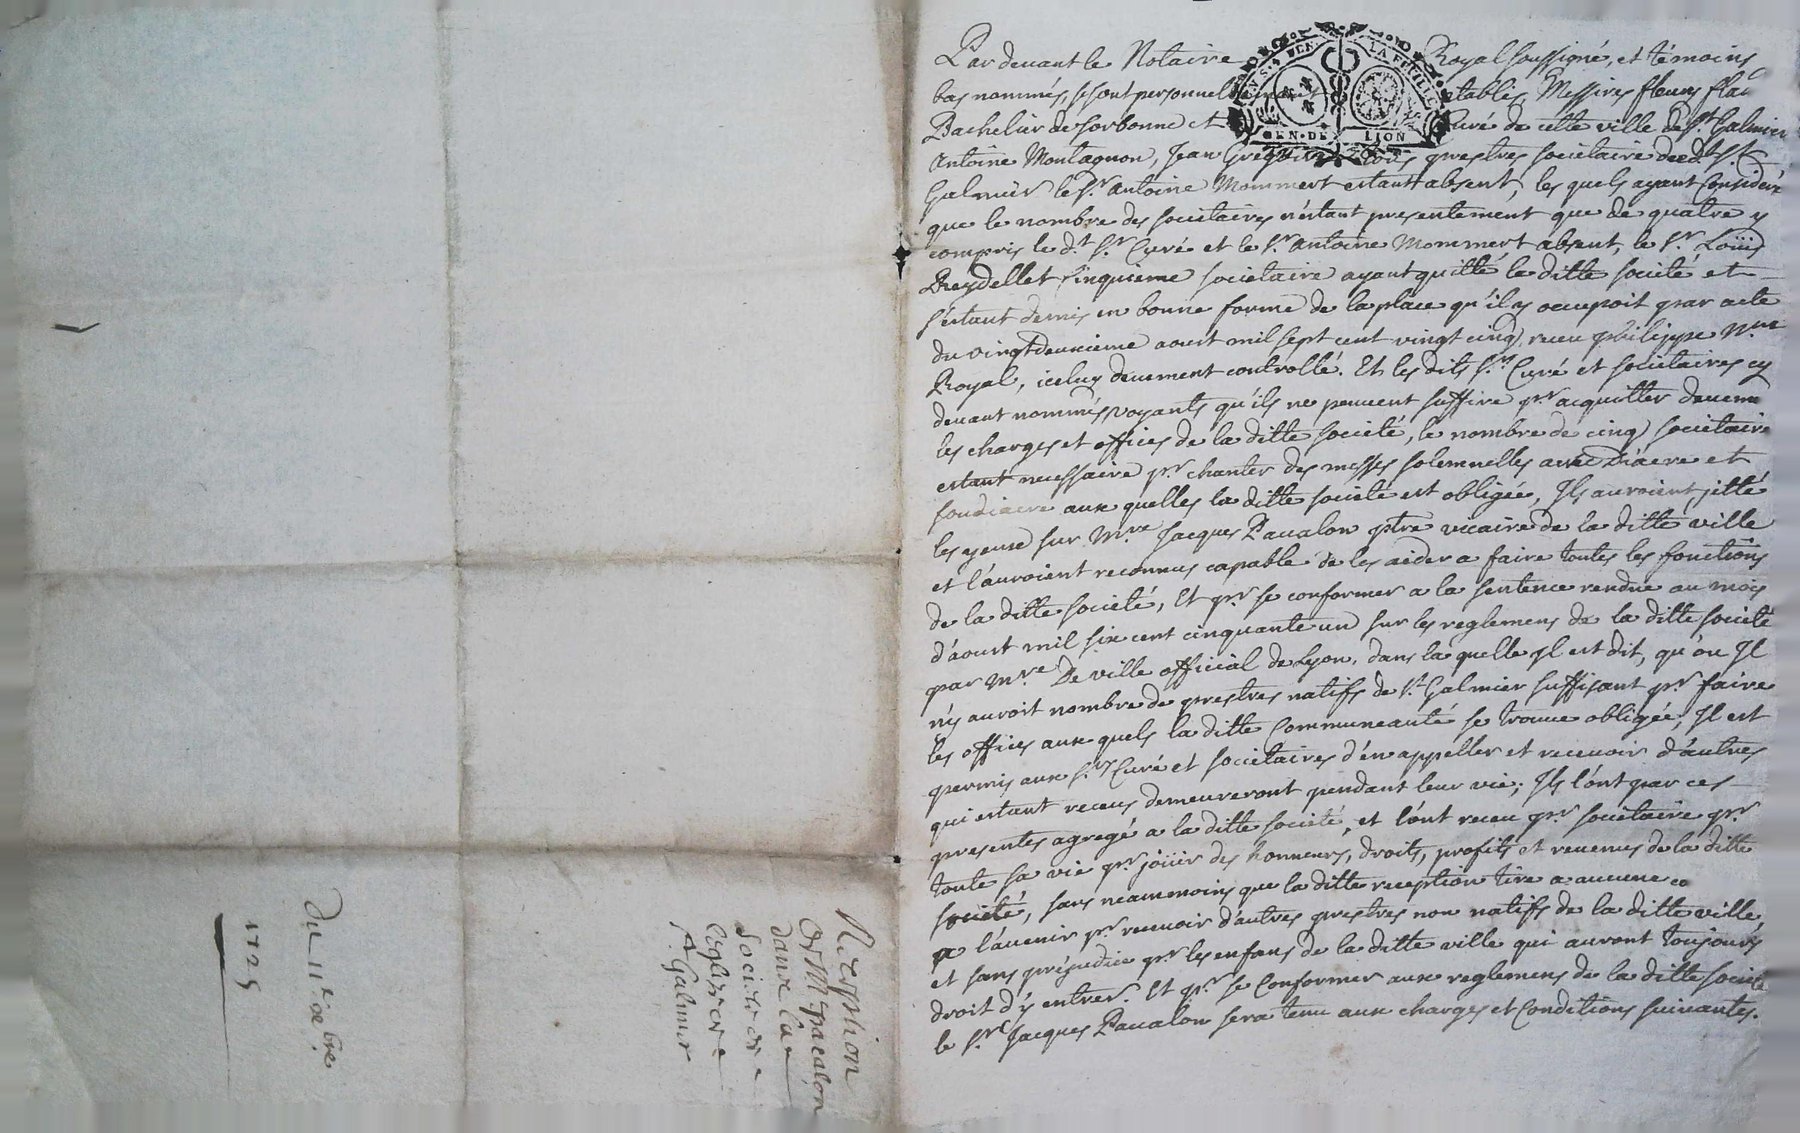 Par devant le Notaire Royal soussigné, et témoins
bas nommés, se sont personnellement etablis, Messires fleury
Bachelier de sorbonne et Curé de cette ville de St Galmier
Antoine Montagnon, Jean prestres societaire dud.t St
Galmier le Sr Antoine Mommert estant absent, les quels ayant Consideré
que le nombre des societaires n'estant presentement que de quatre y
compris le d.t Sr Curé et le Sr Antoine Mommert absent, le Sr Loüis
Reydellet cinquieme societaire ayant quitté la ditte societé et
s'estant demis en bonne forme de la place qu'il y occupoit par acte
du vingtdeuxieme aoust mil sept cent vingt cinq, receu philippe Nre
Royal, iceluy deuement controllé. Et les dits Srs Curé et societaires cy
devant nommés, voyants qu'ils ne peuuent suffire pr acquitter deuem
les charges et offices de la ditte societé, le nombre de cinq societaire
estant necessaire pr chanter des messes solemnelles avec Diacre et
soudiacre aux quelles la ditte societé est obligée, Ils auroient jetté
les yeux sur Mre Jacques Paualon ptre vicaire de la ditte ville
et l'auroient reconnus capable de les aider a faire toutes les fonctions
de la ditte societé, Et pr se conformer a la sentence rendue au mois
d'aoust mil six cent cinquante un sur les reglemens de la ditte societé
par Mre De ville official de Lyon, dans la quelle Il est dit, qu'ou Il
n'y auroit nombre de prestres natifs de St Galmier suffisant pr faire
les offices aux quels la ditte Communeauté se trouue obligée, Il est
permis aux Srs Curé et societaires d'en appeller et receuoir d'autres
qui estant receus demeureront pendant leur vie; Ils l'ont par ces
presentes agregé a la ditte societé, et l'ont receu pr societaire pr
toute sa vie pr joüir des honneurs, droits, profits et reuenus de la ditte
societé, sans neanmoins que la ditte reception tire a aucune co
a l'auenir pr receuoir d'autres prestres non natifs de la ditte ville,
et sans préjudice pr les enfans de la ditte ville qui auront toujours
droit d'y entrer. Et pr se Conformer aux reglemens de la ditte societé
le Sr Jacques Paualon sera tenu aux charges et Conditions suiuantes.
GEN·DE LION
Reception
de Mr pacalon
dans la
Societé de
l'eglise de
St Galmier
Du 11e 8bre
1725